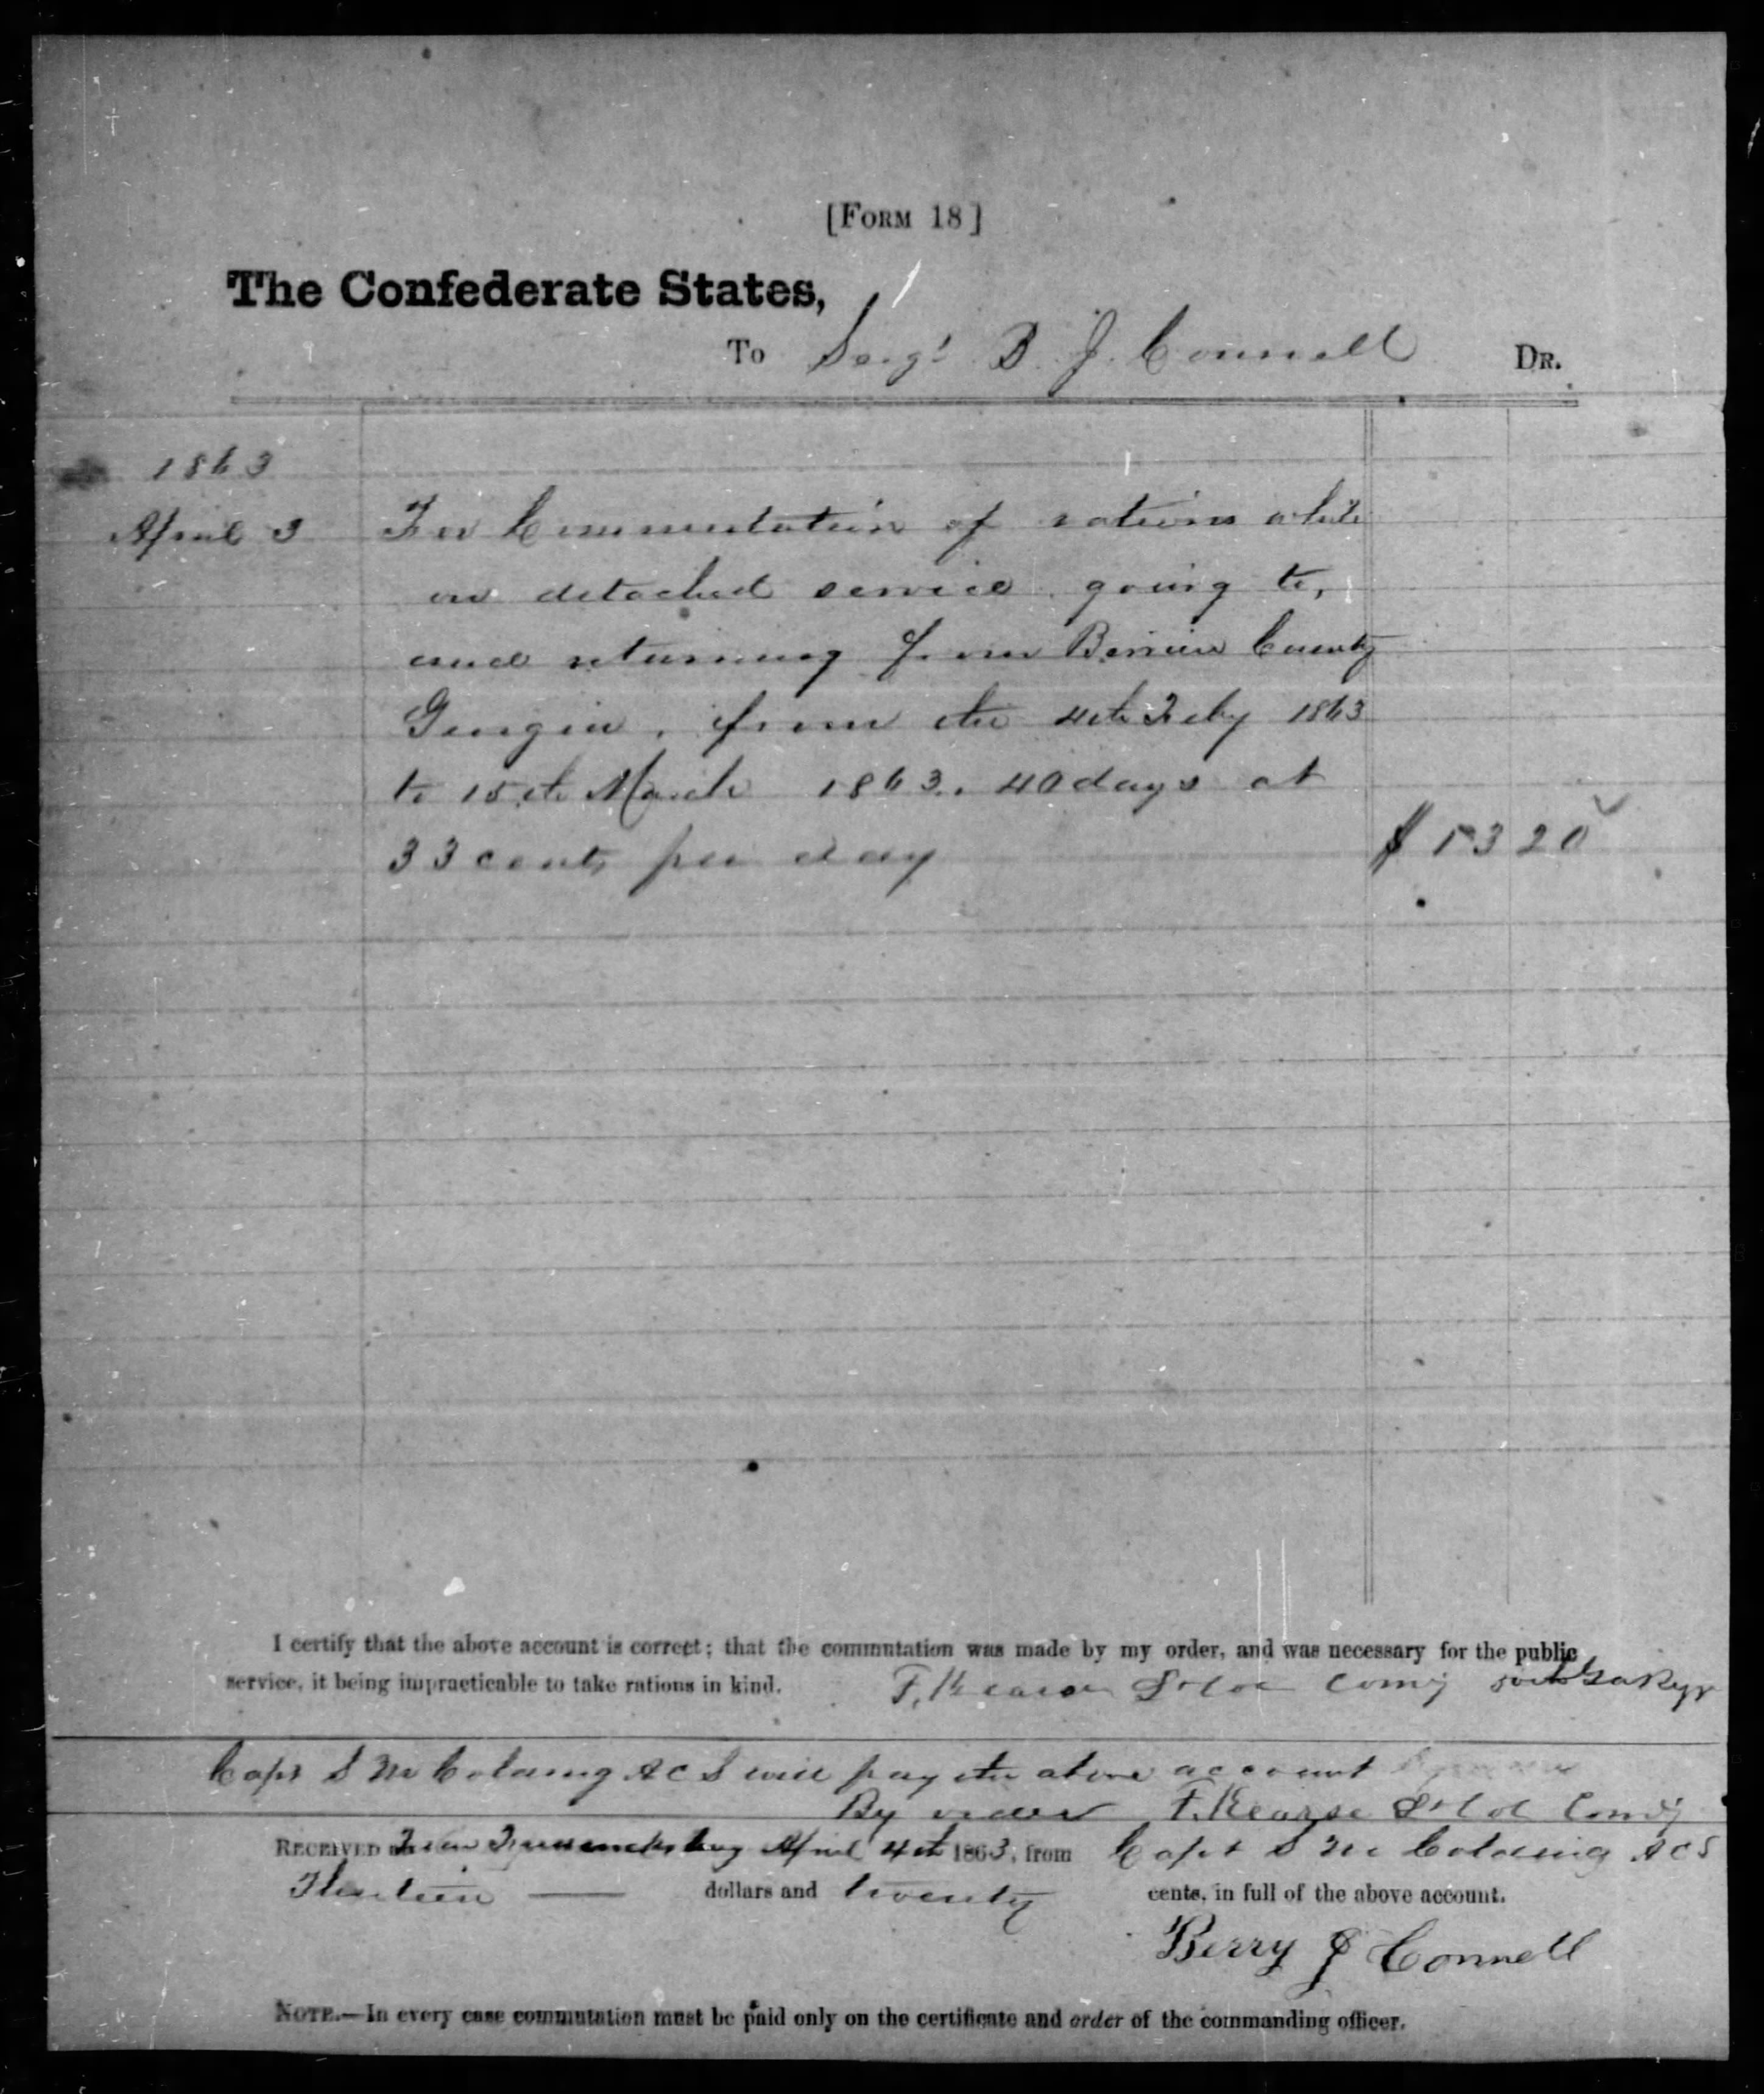 [FORM 18]
The Confederate States,
To Sergt B. J. Connell DR.
1863
April 3 For Commutation of rations while
on detached service going to,
and returning from Berrien County
Georgia, from the 4th Feby 1863
to 15th March 1863. 40 days at
33 cents per day $ 13 20
I certify that the above account is correct; that the commutation was made by my order, and was necessary for the public
service, it being impracticable to take rations in kind. F. Kearse Lt Col Comdg 50th Ga Regt
Capt S M Colding ACS will pay the above account
By order F. Kearse Lt Col Comdg
RECEIVED Near Fredericksburg April 4th 1863, from Capt S M Colding ACS
Thirteen — dollars and twenty cents, in full of the above account.
Berry J Connell
NOTE.—In every case commutation must be paid only on the certificate and order of the commanding officer.